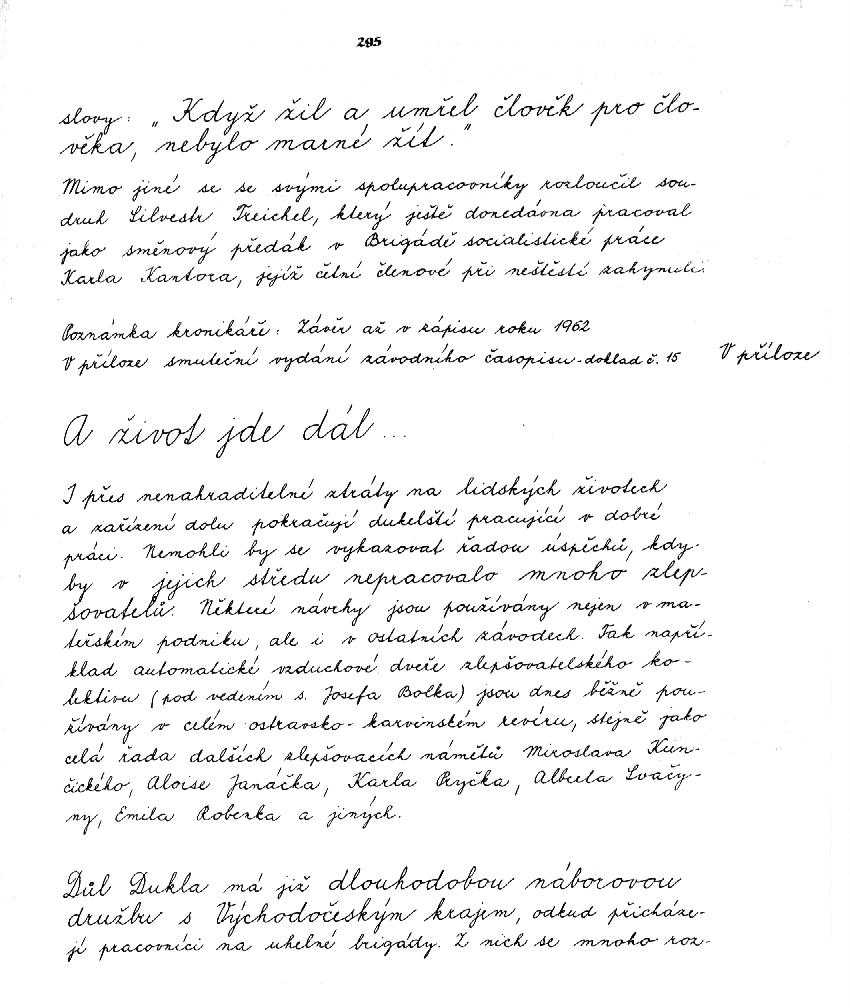 295
slovy: „Když žil a umřel člověk pro člo-
věka, nebylo marné žít."
Mimo jiné se se svými spolupracovníky rozloučil sou-
druh Silvestr Treichel, který ještě donedávna pracoval
jako směnový předák v Brigádě socialistické práce
Karla Kantora, jejíž četní členové při neštěstí zahynuli.
Poznámka kronikáře: Závěr až v zápisu roku 1962
V příloze smuteční vydání závodního časopisu-doklad č. 15
V příloze
A život jde dál...
I přes nenahraditelné ztráty na lidských životech
a zařízení dolu pokračují dukelští pracující v dobré
práci. Nemohli by se vykazovat řadou úspěchů, kdy-
by v jejich středu nepracovalo mnoho zlep-
šovatelů. Některé návrhy jsou používány nejen v ma-
teřském podniku, ale i v ostatních závodech. Tak napří-
klad automatické vzduchové dveře zlepšovatelského ko-
lektivu (pod vedením s. Josefa Bolka) jsou dnes běžně pou-
žívány v celém ostravsko-karvinském revíru, stejně jako
celá řada dalších zlepšovacích námětů Miroslava Kun-
čického, Aloise Janáčka, Karla Ryčka, Alberta Svačy-
ny, Emila Roberka a jiných.
Důl Dukla má již dlouhodobou náborovou
družbu s Východočeským krajem, odkud přicháze-
jí pracovníci na uhelné brigády. Z nich se mnoho roz-